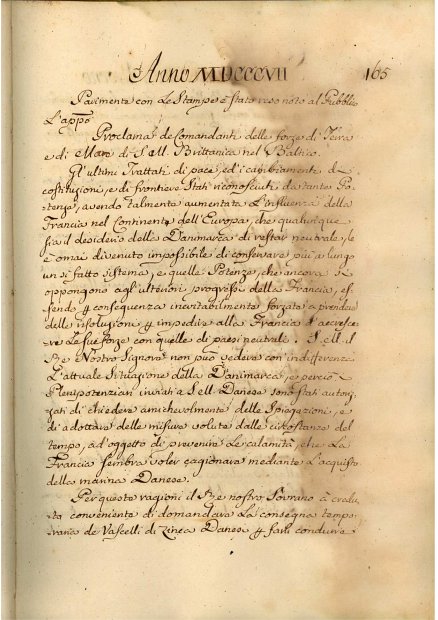 Anno MDCCCVII 165
Parimente con Le Stampe è stato reso noto al Pubblico
L'appo
Proclama de Comandanti delle forze di Terra
e di Mare di S. M. Brittanica nel Baltico.
Gl'ultimi Trattati di pace, ed i cambiamenti di
costituzioni, e di frontiere Stati riconosciuti da tante Po-
tenze, avendo talmente aumentata L'influenza della
Francia nel Continente dell'Europa, che qualunque
sia il desiderio della Danimarca di restar neutrale, le
è omai divenuto impossibile di conservare più a lungo
un sì fatto sistema, e quelle Potenze, che ancora si
oppongono agl'ulteriori progressi della Francia, es-
sendo p conseguenza inevitabilmente forzate a prendere
delle risoluzioni p impedire alla Francia d'accresce-
re Le sue forze con quelle di paesi neutrale. S. M. il
Re Nostro Signore non può vedere con indifferenza
L'attuale Situazione della Danimarca, e perciò i
Plenipotenziari inviati a S. M. Danese sono stati autoriz-
zati di chiedere amichevolmente delle Spiegazioni, e
di adottare delle misure volute dalle circostanze del
tempo, ad oggetto di prevenire Le calamità, che La
Francia sembra voler cagionare mediante L'acquisto
della marina Danese.
Per queste ragioni il Re nostro Sovrano à credu-
to conveniente di domandare La consegna tempo-
raria de Vascelli di Linea Danese p farli condurre